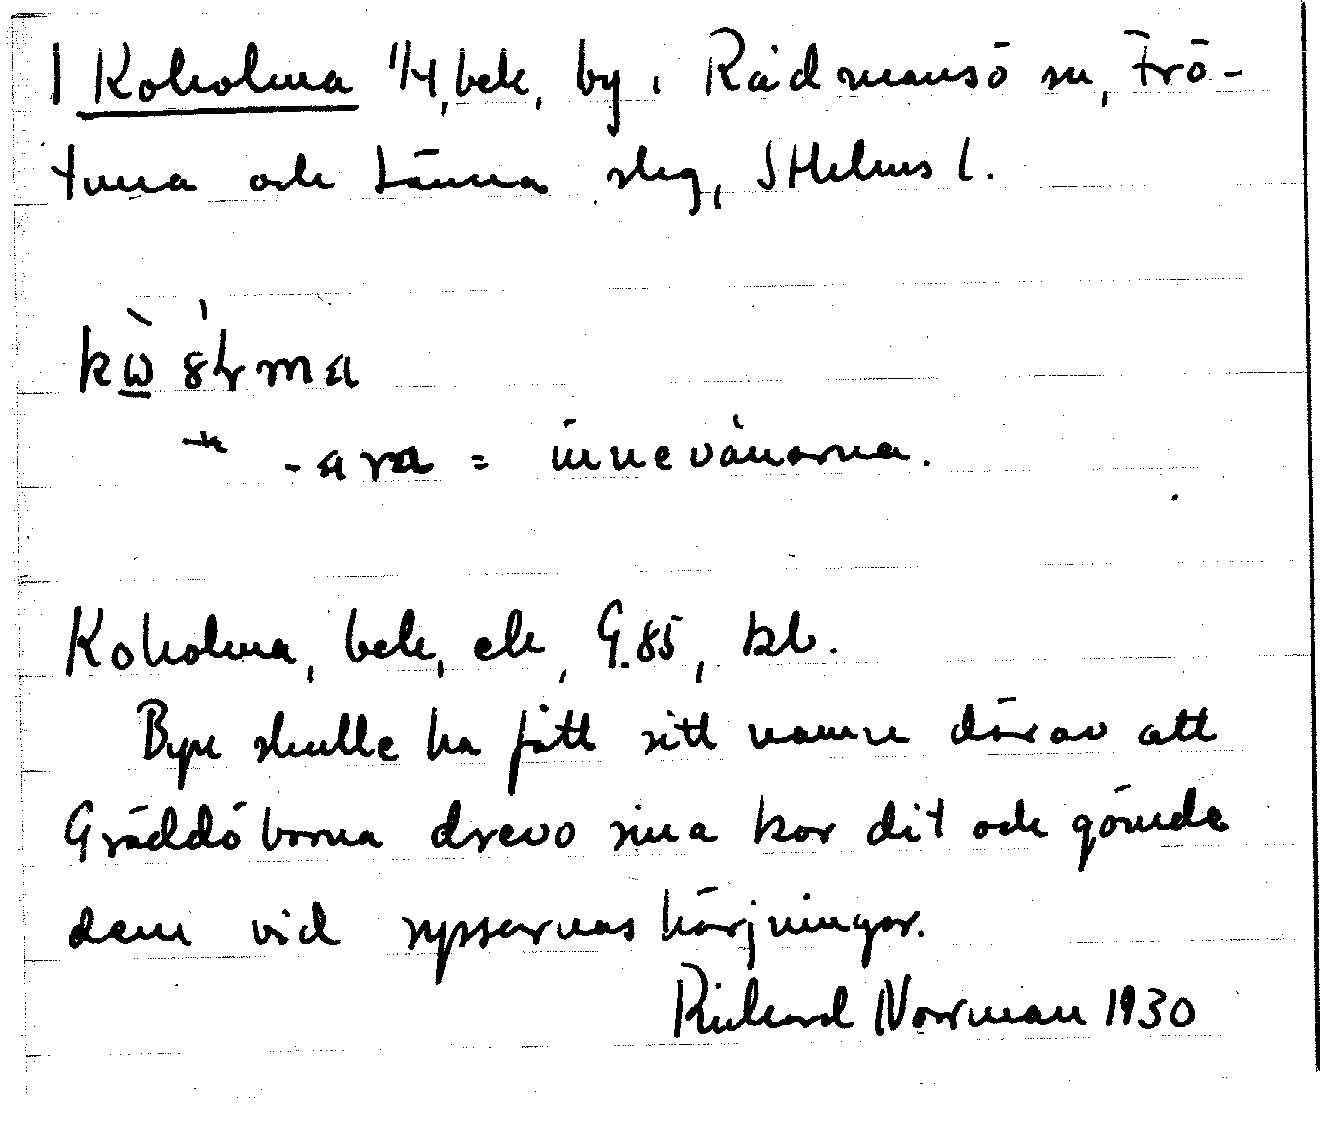 1 Koholma 1/4, bek, by i Rådmansö sn, Frö-
tuna och Länna sklg, Sthlms l.
-ara = innevånarna.
Koholma, bek, ek, G.85, kb.
Byn skulle ha fått sitt namn därav att
Gräddöborna drevo sina kor dit och gömde
dem vid ryssarnas härjningar.
Rickard Norrman 1930